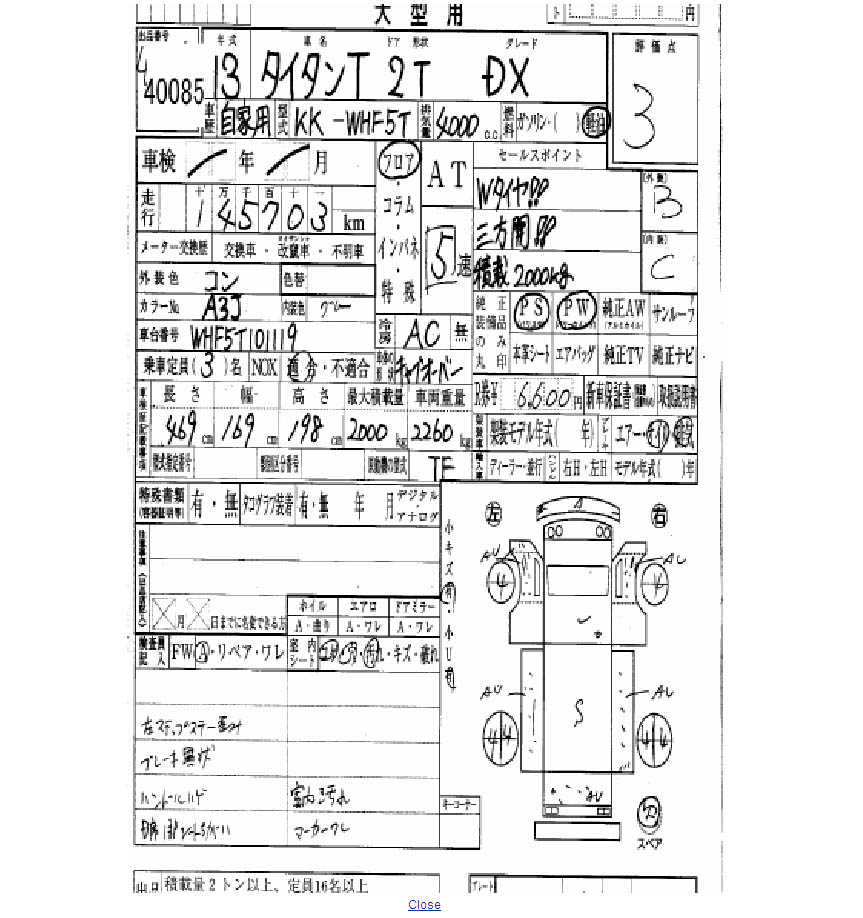 大型用
円
出品番号 年式 車名 ドア 形状 グレード 評価点
40085 13 タイタンT 2 T DX 3
車歴 自家用 型式 KK-WHF5T 排気量 4000 c.c. 燃料 ガソリン・( ) 軽油
車検 年 月 フロア・コラム・インパネ・特殊 AT セールスポイント
Wタイヤ!! (外装) B
走行 十万千百十一
145703 km 5速 三方開!!
メーター交換歴 交換車・改竄車・不明車 積載 2000kg (内装) C
外装色 コン 色替 純正装備品のみ丸印 PS PW 純正AW サンルーフ
カラーNo A3J 内装色 グレー 冷房 AC 無
車台番号 WHF5T101119 本革シート エアバッグ 純正TV 純正ナビ
乗車定員(3)名 NOX 適合・不適合 キャブオーバー R券¥ 6,600円 新車保証書 取扱説明書
車検証記載事項 長さ 幅 高さ 最大積載量 車両重量
469cm 169cm 198cm 2000kg 2260kg 架装モデル年式( 年) エアー・
類別区分番号 原動機の型式 TF ディーラー・並行 右目・左目 モデル年式( )年
特殊書類 有・無 タコグラフ装着 有・無 年 月 デジタル・アナログ
小キズ有・小U有
左 右
AU AU
4 4
注意事項
ホイル エアロ ドアミラー
月 日までに名変できる方 A・曲り A・ワレ A・ワレ
検査員記入 FW A・リペア・ワレ 室内シート ・キズ・破れ
AU AU
S
44 44
左ステップステー曲り
ブレーキ異状
ハンドルハゲ 室内汚れ
マーカーワレ
AU
キーコーナー
スペア
積載量2トン以上、定員16名以上
プレート
Close